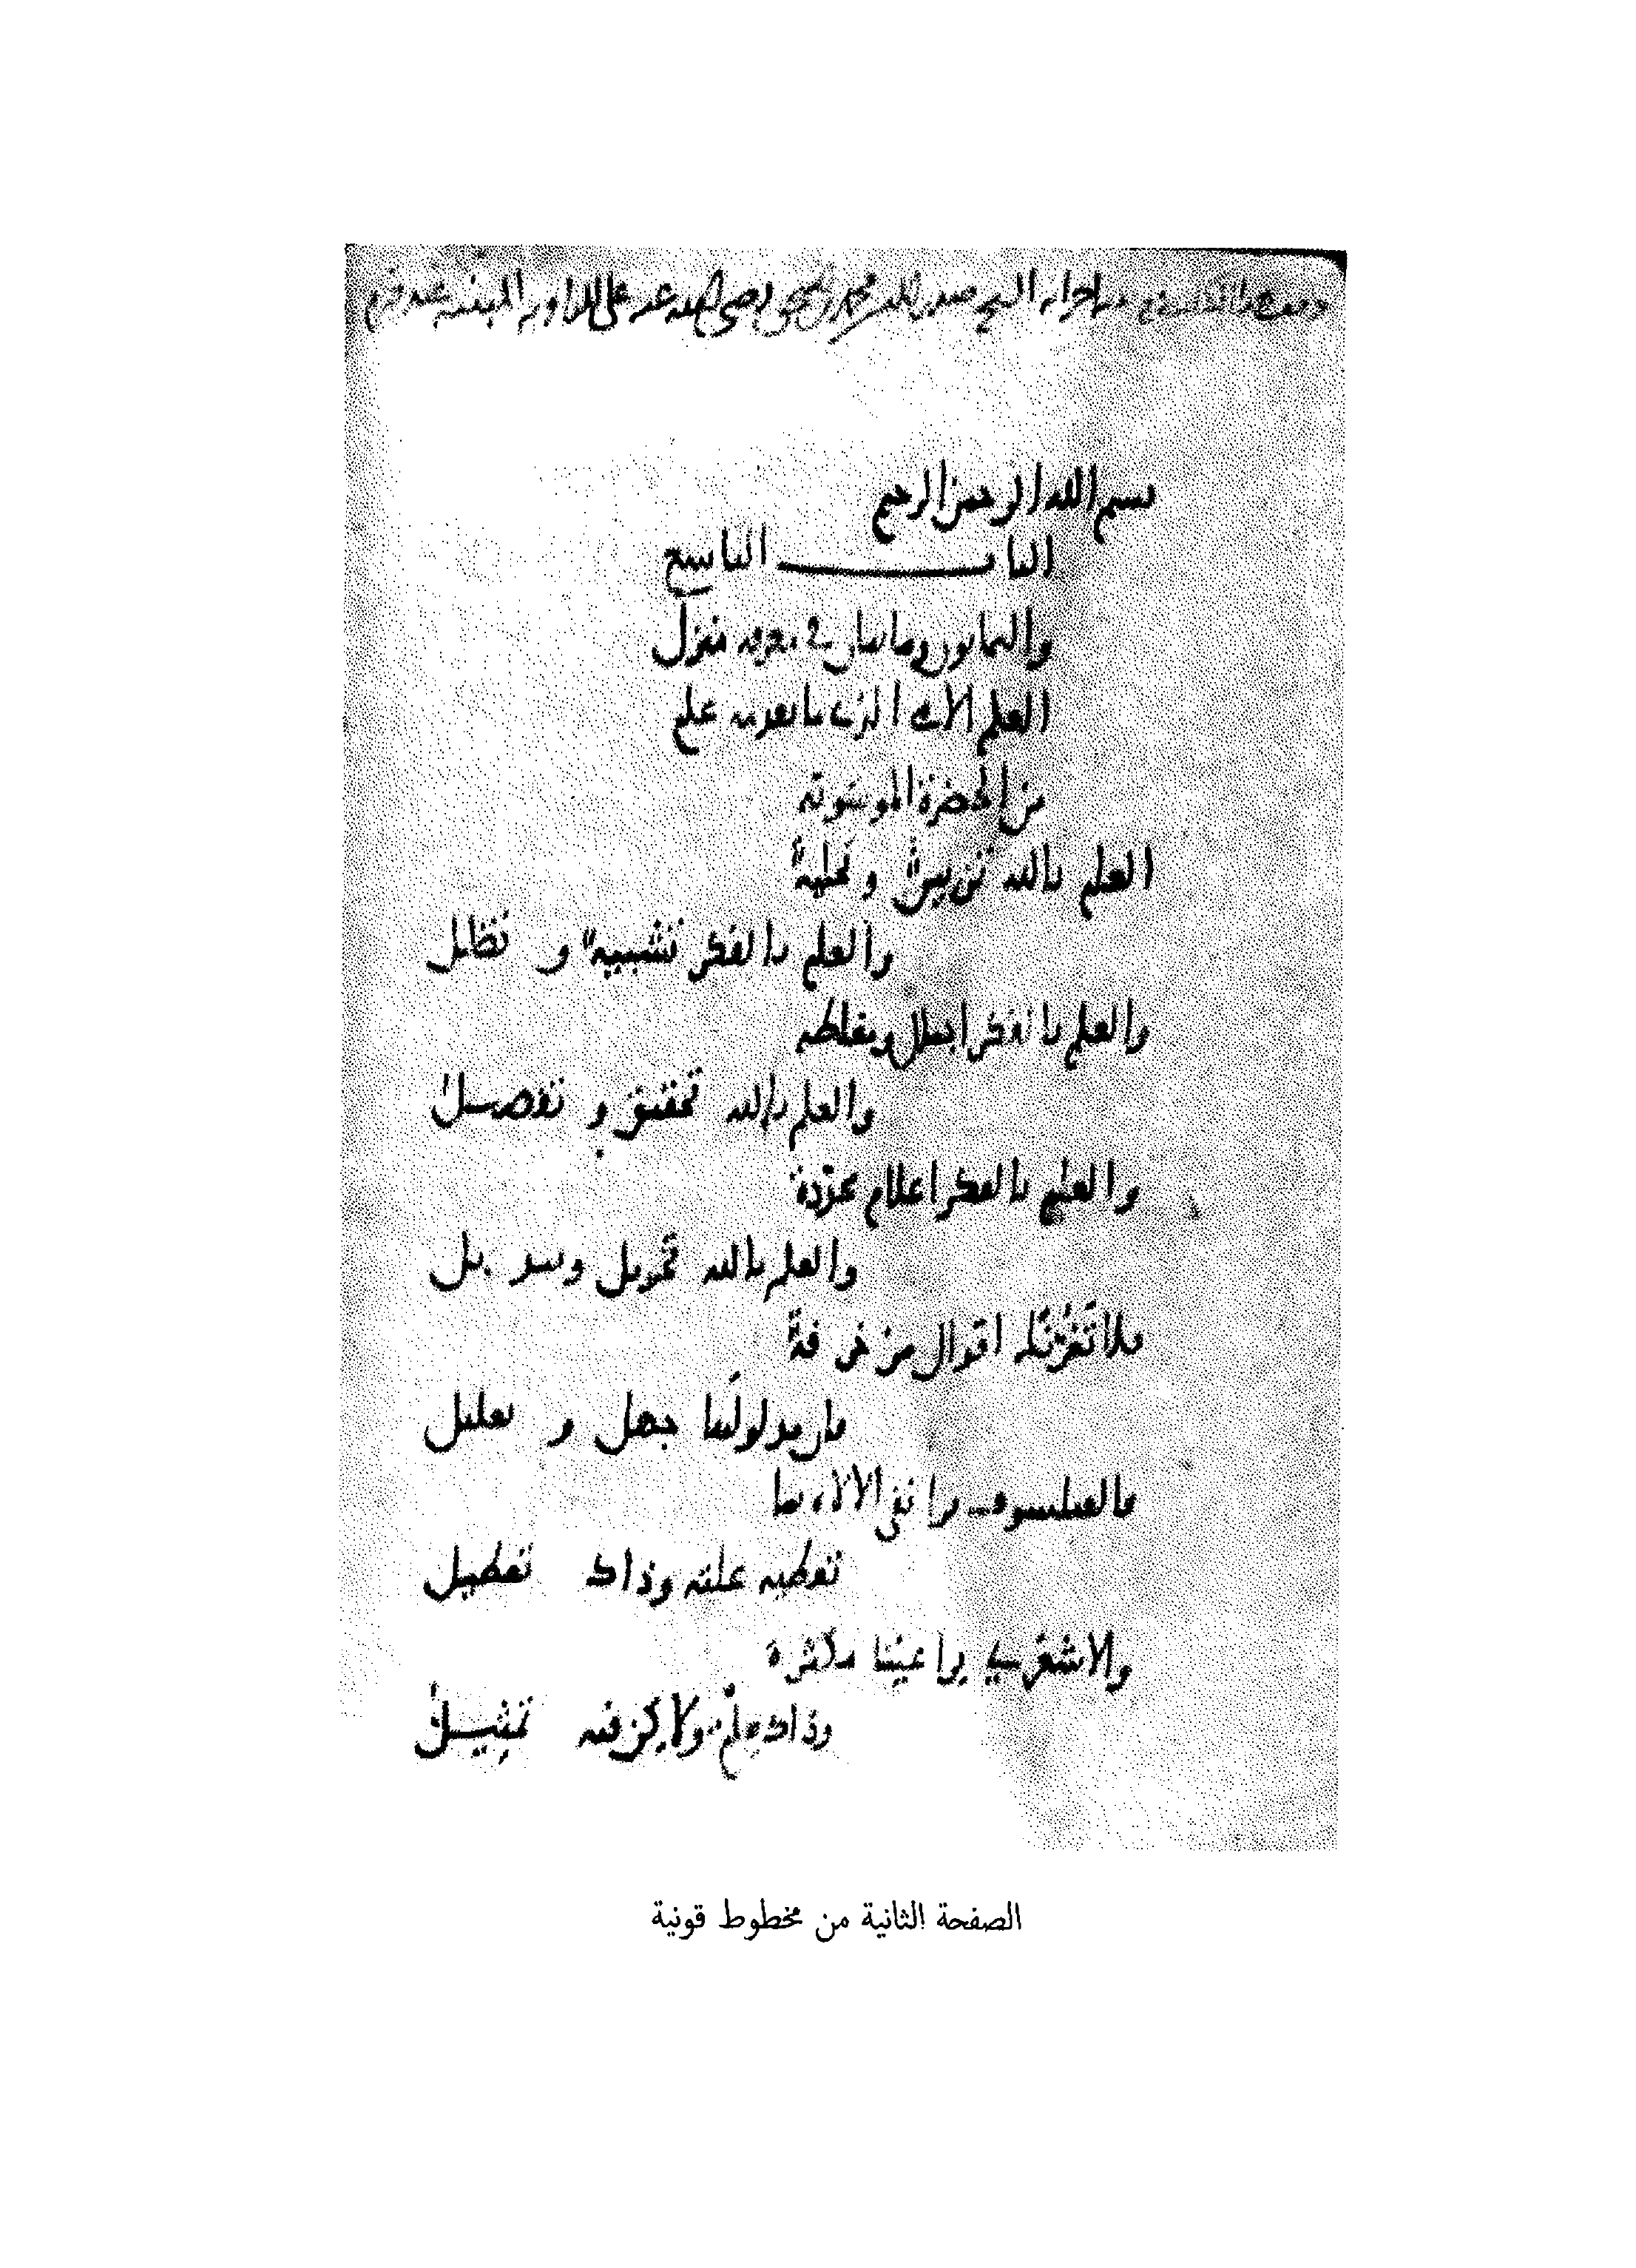 وقف هذا الكتاب مع سائر اجزائه الشيخ صدر الدين محمد بن اسحق رضى الله عنه على الزاوية المبنية عند قبره
بسم الله الرحمن الرحيم
الباب التاسع
والثمانون ومايتان في معرفة منزل
العلم الامي الذي ما تقدمه علم
من الحضرة الموسوية
العلم بالله تزيين وتحلية
والعلم بالفكر تشبيه و تظليل
والعلم بالفكر اجمال ومغلطة
والعلم بالله تحقيق و تفصيل
والعلم بالفكر اعلام مجردة
والعلم بالله تحويل وتبديل
فلا تغرنك اقوال مزخرفة
فان مدلولها جهل و تعليل
فالفيلسوف يرا نفي الالاه بما
تعطيه علته وذاك تعطيل
والاشعري يرا عينا مكثرة
وذاك علم ولاكن فيه تمثيل
الصفحة الثانية من مخطوط قونية